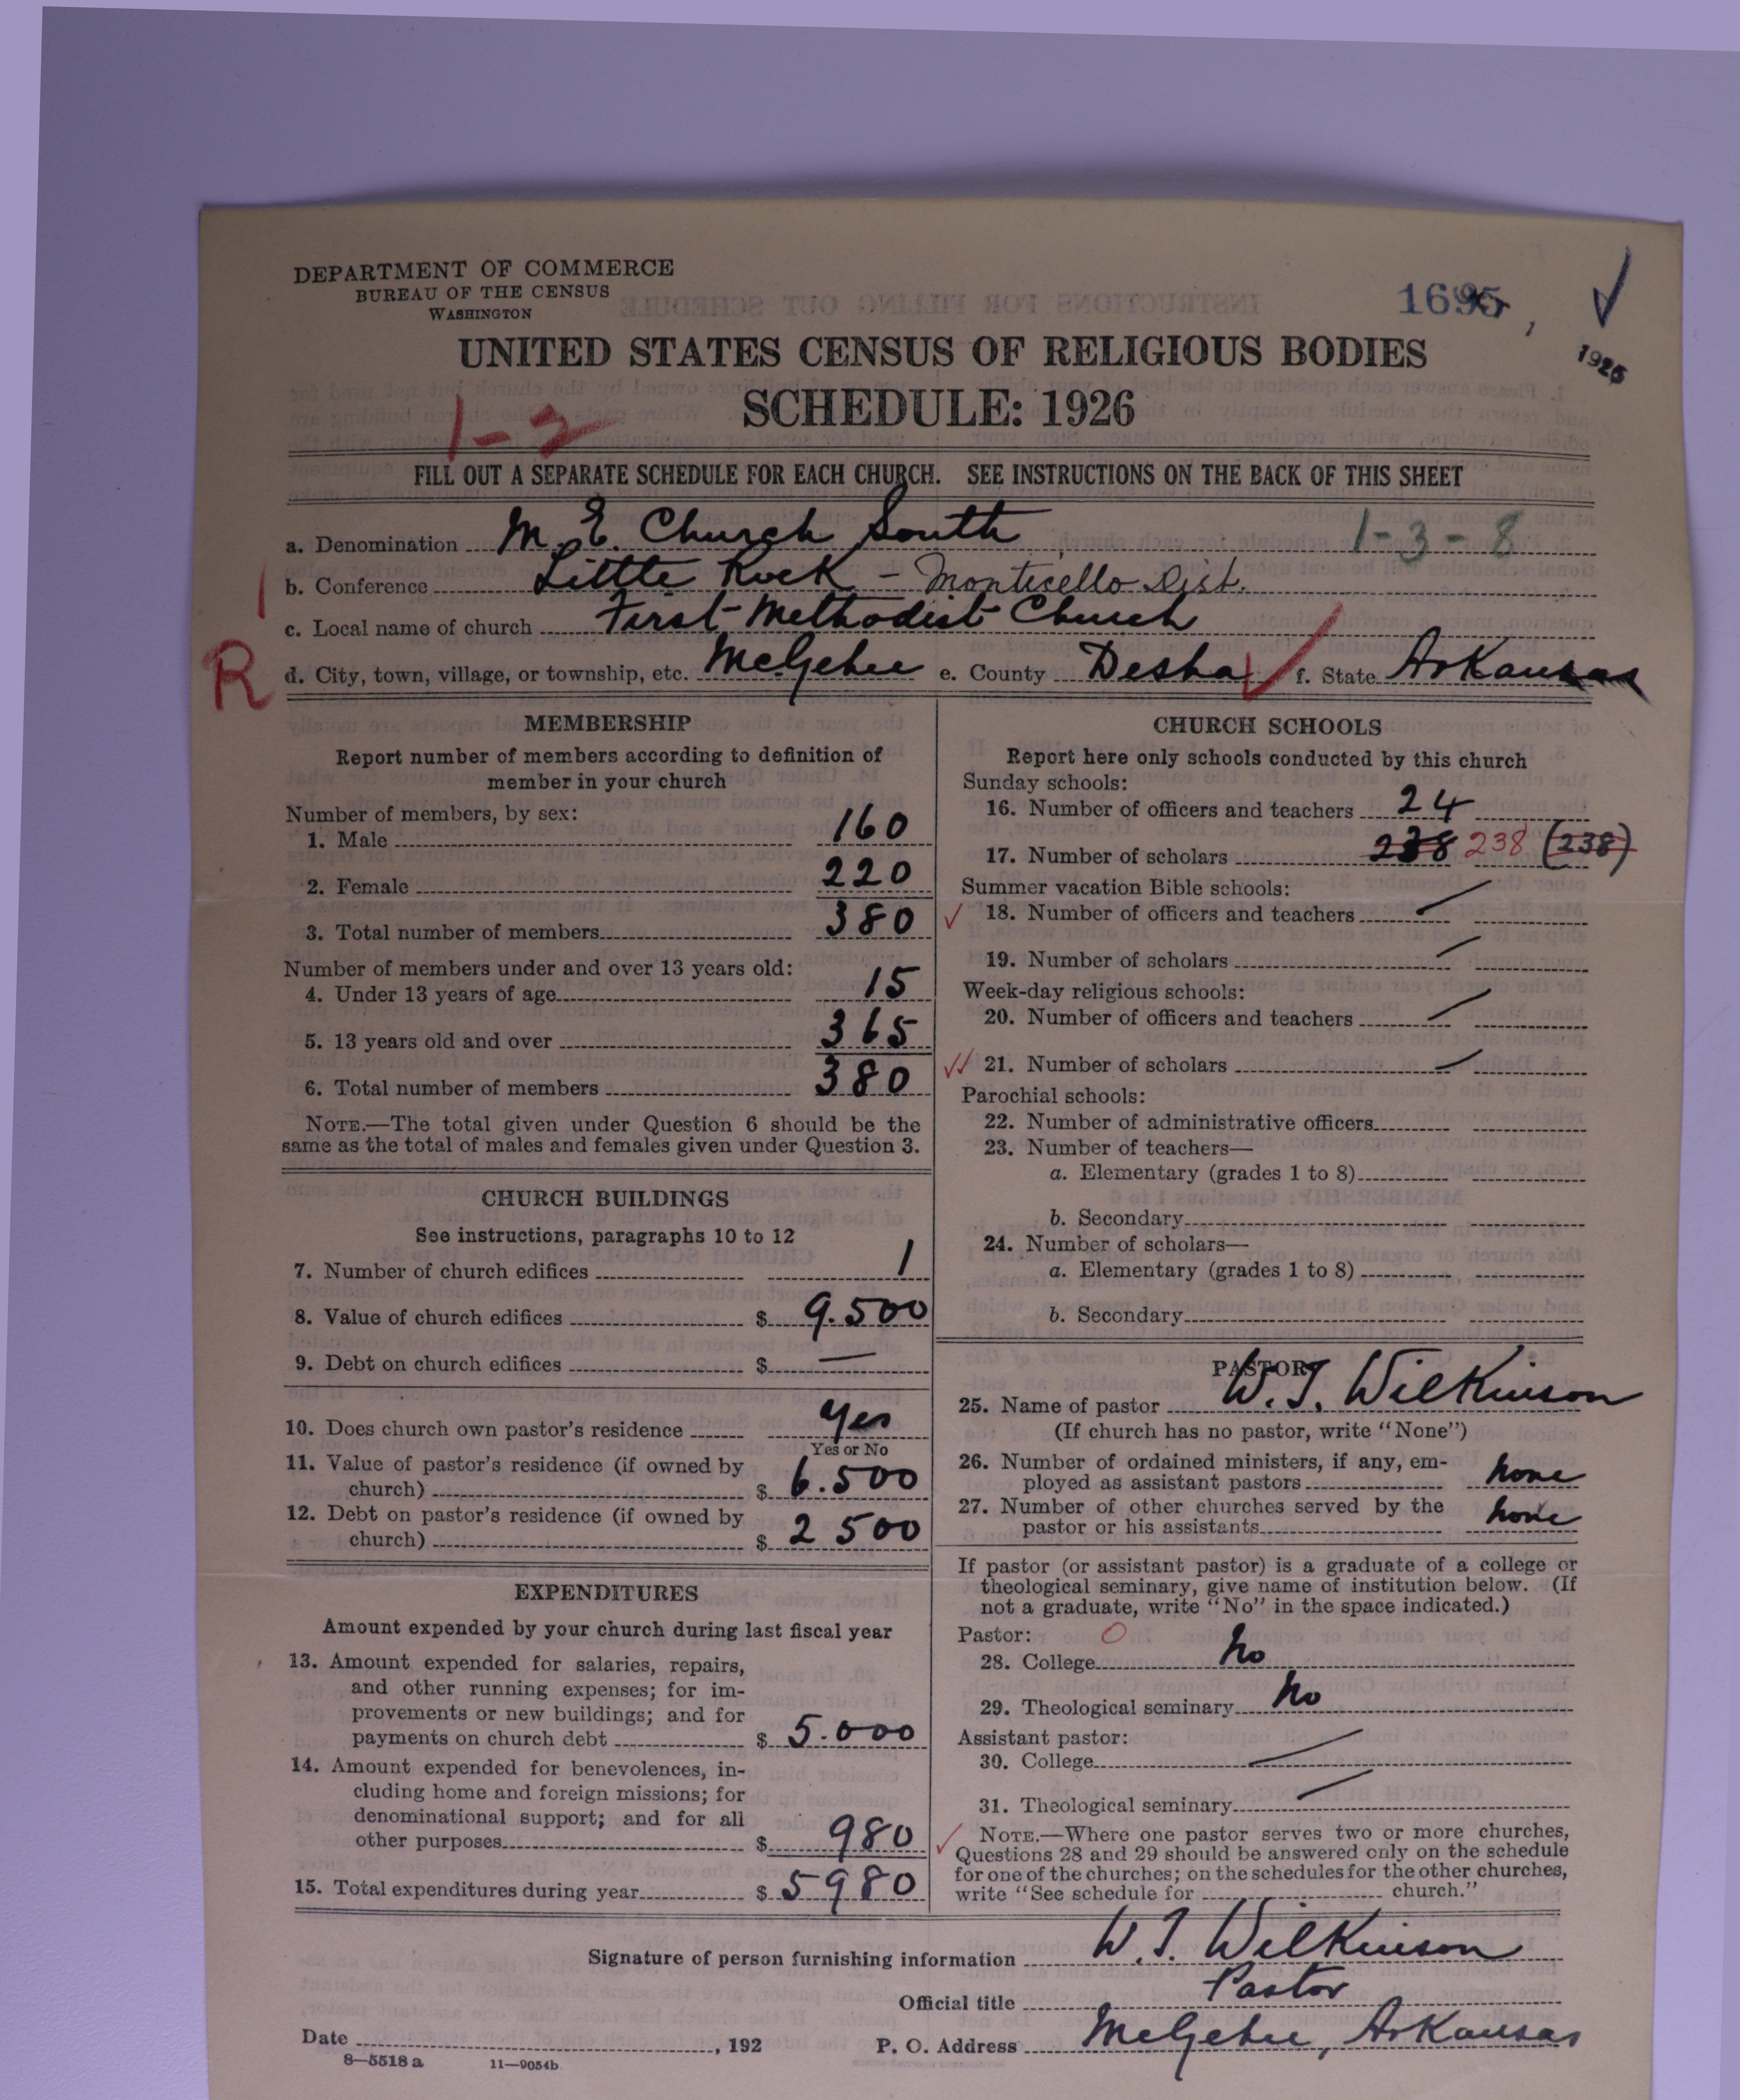 DEPARTMENT OF COMMERCE
BUREAU OF THE CENSUS
WASHINGTON
1926
UNITED STATES CENSUS OF RELIGIOUS BODIES
SCHEDULE: 1926
1-2
FILL OUT A SEPARATE SCHEDULE FOR EACH CHURCH. SEE INSTRUCTIONS ON THE BACK OF THIS SHEET
a. Denomination M. E. Church South 1-3-8
b. Conference Little Rock - Monticello Dist.
c. Local name of church First Methodist Church
R d. City, town, village, or township, etc. McGehee e. County Desha f. State Arkansas
MEMBERSHIP
Report number of members according to definition of
member in your church
Number of members, by sex:
1. Male 160
2. Female 220
3. Total number of members 380
Number of members under and over 13 years old:
4. Under 13 years of age 15
5. 13 years old and over 365
6. Total number of members 380
NOTE.—The total given under Question 6 should be the
same as the total of males and females given under Question 3.
CHURCH BUILDINGS
See instructions, paragraphs 10 to 12
7. Number of church edifices 1
8. Value of church edifices $ 9.500
9. Debt on church edifices $ —
10. Does church own pastor's residence Yes
Yes or No
11. Value of pastor's residence (if owned by
church) $ 6.500
12. Debt on pastor's residence (if owned by
church) $ 2 500
EXPENDITURES
Amount expended by your church during last fiscal year
13. Amount expended for salaries, repairs,
and other running expenses; for im-
provements or new buildings; and for
payments on church debt $ 5.000
14. Amount expended for benevolences, in-
cluding home and foreign missions; for
denominational support; and for all
other purposes $ 980
15. Total expenditures during year $ 5980
CHURCH SCHOOLS
Report here only schools conducted by this church
Sunday schools:
16. Number of officers and teachers 24
17. Number of scholars 238 238 (238)
Summer vacation Bible schools:
18. Number of officers and teachers
19. Number of scholars
Week-day religious schools:
20. Number of officers and teachers
21. Number of scholars
Parochial schools:
22. Number of administrative officers
23. Number of teachers—
a. Elementary (grades 1 to 8)
b. Secondary
24. Number of scholars—
a. Elementary (grades 1 to 8)
b. Secondary
PASTOR
25. Name of pastor W. T. Wilkinson
(If church has no pastor, write "None")
26. Number of ordained ministers, if any, em-
ployed as assistant pastors none
27. Number of other churches served by the
pastor or his assistants none
If pastor (or assistant pastor) is a graduate of a college or
theological seminary, give name of institution below. (If
not a graduate, write "No" in the space indicated.)
Pastor: O
28. College No
29. Theological seminary No
Assistant pastor:
30. College
31. Theological seminary
NOTE.—Where one pastor serves two or more churches,
Questions 28 and 29 should be answered only on the schedule
for one of the churches; on the schedules for the other churches,
write "See schedule for church."
Signature of person furnishing information W. T. Wilkinson
Official title Pastor
Date , 192 P. O. Address McGehee, Arkansas
8—5518 a 11—9054b